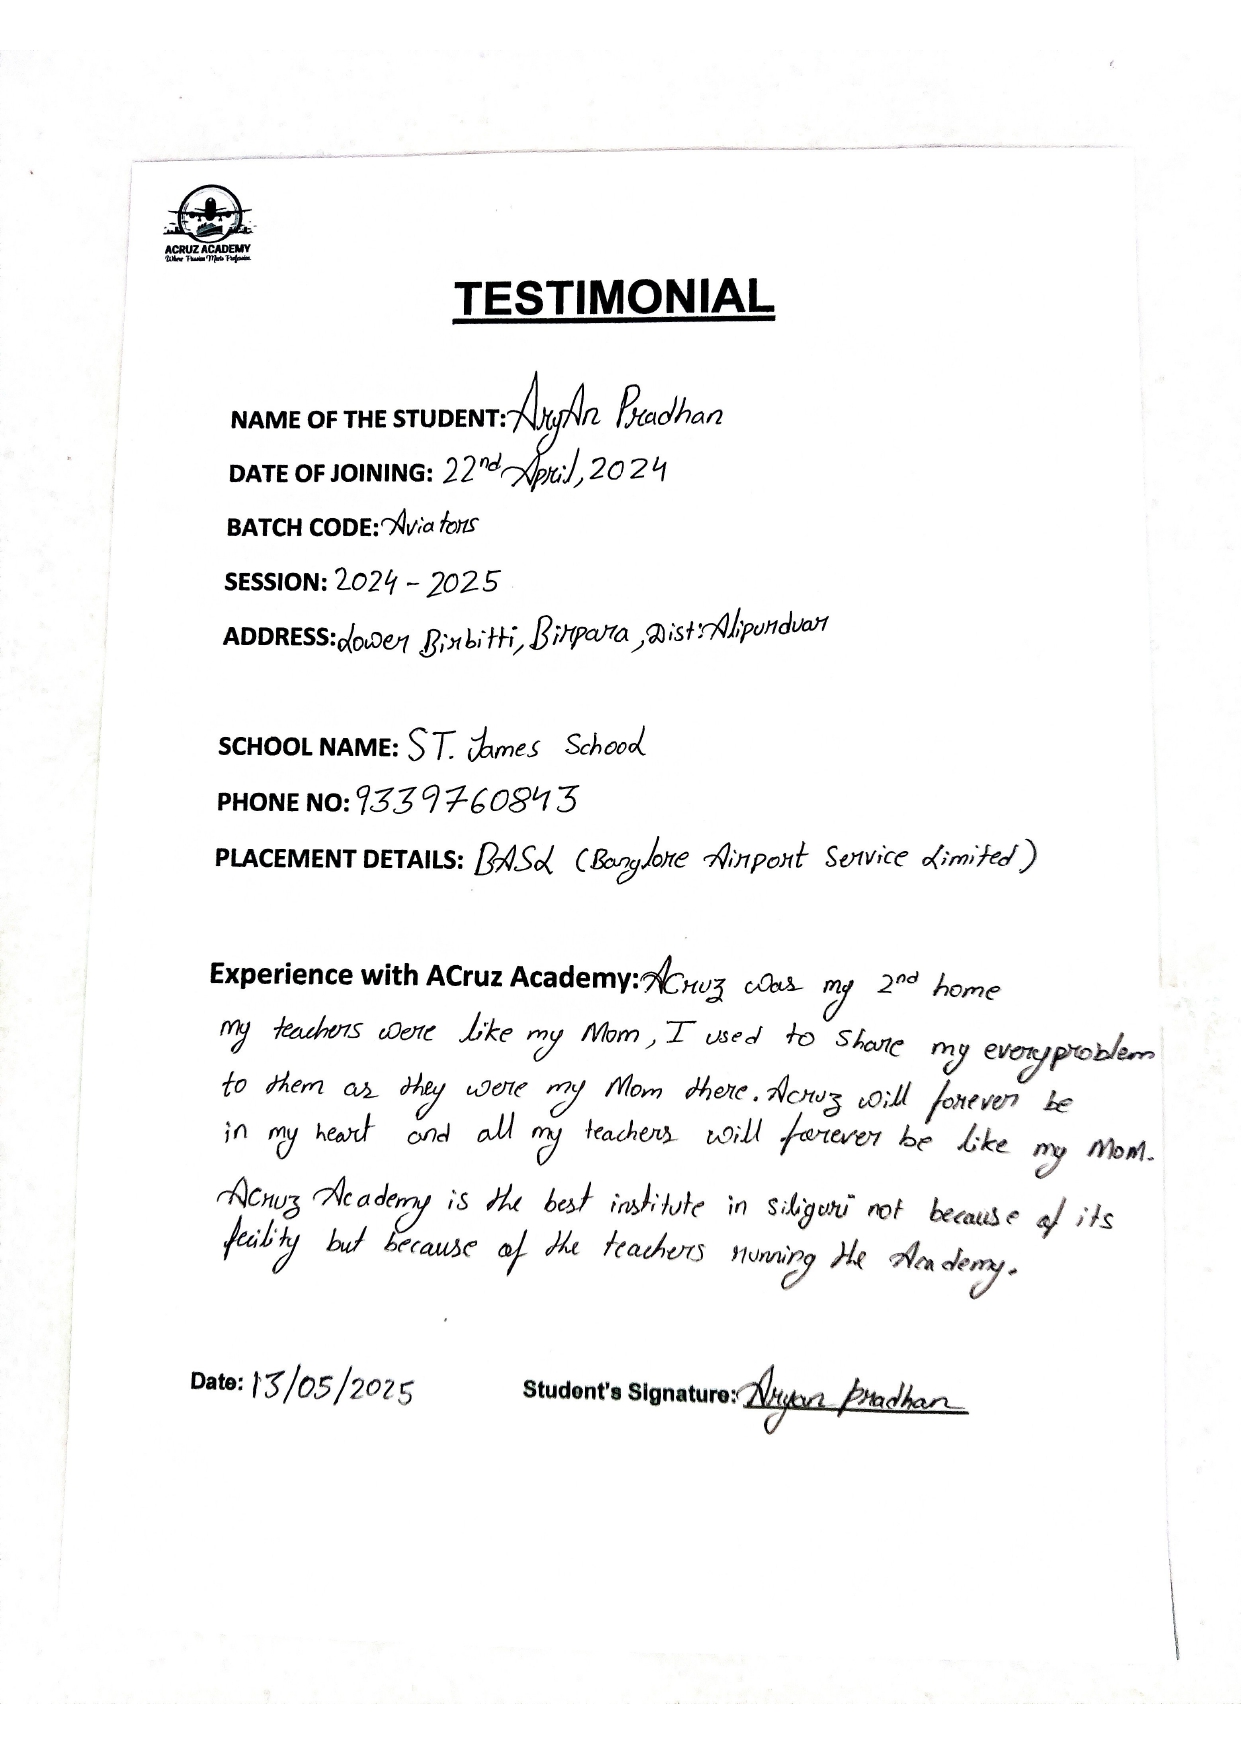 ACRUZ ACADEMY
Where Passion Meets Profession
TESTIMONIAL
NAME OF THE STUDENT: AryAn Pradhan
DATE OF JOINING: 22nd April, 2024
BATCH CODE: Aviators
SESSION: 2024 - 2025
ADDRESS: Lower Birbitti, Birpara, Dist: Alipurduar
SCHOOL NAME: ST. James School
PHONE NO: 9339760843
PLACEMENT DETAILS: BASL (Banglore Airport Service Limited)
Experience with ACruz Academy: ACruz was my 2nd home
my teachers were like my Mom, I used to share my every problem
to them as they were my Mom there. Acruz will forever be
in my heart and all my teachers will forever be like my Mom.
ACruz Academy is the best institute in siliguri not because of its
fecility but because of the teachers running the Academy.
Date: 13/05/2025 Student's Signature: Aryan Pradhan